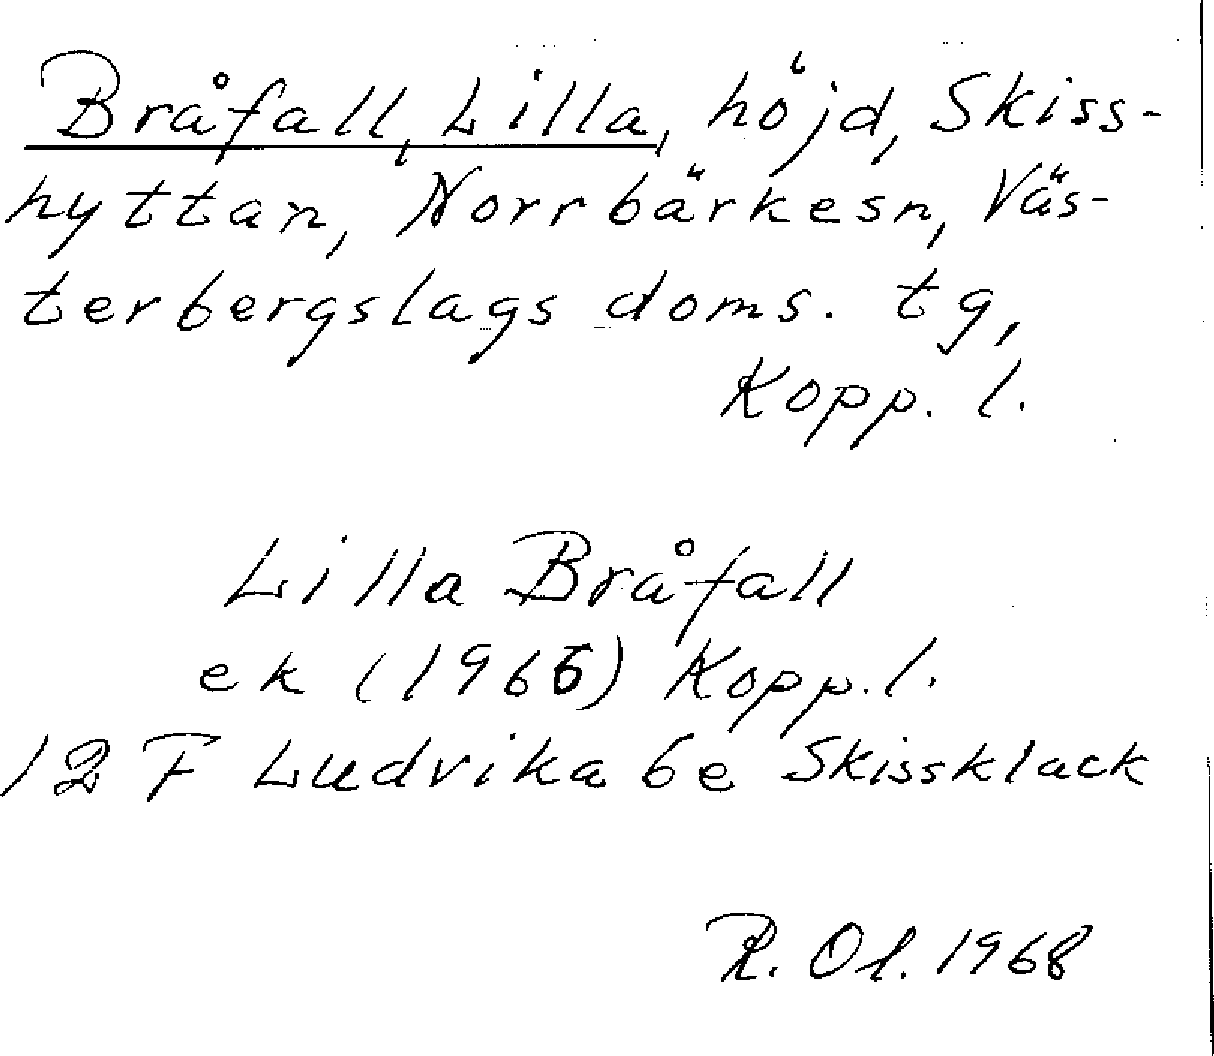 Bråfall, Lilla, höjd, Skiss-
hyttan, Norrbärkesn, Väs-
terbergslags doms. tg,
Kopp. l.
Lilla Bråfall
ek (1966) Kopp. l.
12 F Ludvika 6e Skissklack
R. Ol. 1968